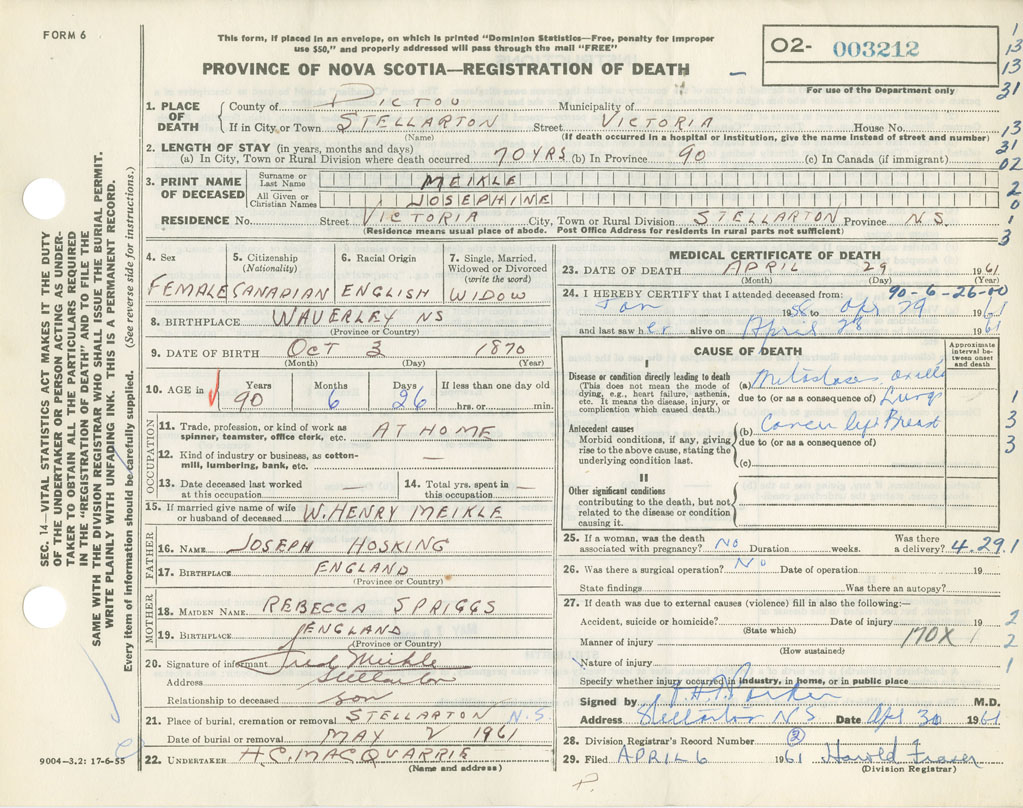 FORM 6
This form, if placed in an envelope, on which is printed "Dominion Statistics—Free, penalty for improper
use $50," and properly addressed will pass through the mail "FREE"
PROVINCE OF NOVA SCOTIA—REGISTRATION OF DEATH
02- 003212
For use of the Department only
1. PLACE OF DEATH
County of PICTOU Municipality of
If in City or Town STELLARTON Street VICTORIA House No.
(Name) (If death occurred in a hospital or institution, give the name instead of street and number)
2. LENGTH OF STAY (in years, months and days)
(a) In City, Town or Rural Division where death occurred 70 YRS (b) In Province 90 (c) In Canada (if immigrant)
3. PRINT NAME OF DECEASED
Surname or Last Name MEIKLE
All Given or Christian Names JOSEPHINE
RESIDENCE No. Street VICTORIA City, Town or Rural Division STELLARTON Province N.S.
(Residence means usual place of abode. Post Office Address for residents in rural parts not sufficient)
4. Sex
FEMALE
5. Citizenship (Nationality)
CANADIAN
6. Racial Origin
ENGLISH
7. Single, Married, Widowed or Divorced (write the word)
WIDOW
8. BIRTHPLACE WAVERLEY NS
(Province or Country)
9. DATE OF BIRTH OCT 3 1870
(Month) (Day) (Year)
10. AGE in Years Months Days If less than one day old
90 6 26 hrs. or min.
OCCUPATION
11. Trade, profession, or kind of work as spinner, teamster, office clerk, etc. AT HOME
12. Kind of industry or business, as cotton-mill, lumbering, bank, etc. —
13. Date deceased last worked at this occupation —
14. Total yrs. spent in this occupation —
15. If married give name of wife or husband of deceased W. HENRY MEIKLE
FATHER
16. NAME JOSEPH HOSKING
17. BIRTHPLACE ENGLAND
(Province or Country)
MOTHER
18. MAIDEN NAME REBECCA SPRIGGS
19. BIRTHPLACE ENGLAND
(Province or Country)
20. Signature of informant Fred Meikle
Address Stellarton
Relationship to deceased son
21. Place of burial, cremation or removal STELLARTON N.S.
Date of burial or removal MAY 2 1961
22. UNDERTAKER H.C. MACQUARRIE
(Name and address)
MEDICAL CERTIFICATE OF DEATH
23. DATE OF DEATH APRIL 29 1961
(Month) (Day) (Year)
90-6-26-00
24. I HEREBY CERTIFY that I attended deceased from:
Jan 1958 to Apr 29 1961
and last saw her alive on April 28 1961
CAUSE OF DEATH
Approximate interval between onset and death
I
Disease or condition directly leading to death
(This does not mean the mode of dying, e.g., heart failure, asthenia, etc. It means the disease, injury, or complication which caused death.)
(a) Metastases axilla
due to (or as a consequence of) Lungs
Antecedent causes
Morbid conditions, if any, giving rise to the above cause, stating the underlying condition last.
(b) Cancer left Breast
due to (or as a consequence of)
(c)
II
Other significant conditions
contributing to the death, but not related to the disease or condition causing it.
25. If a woman, was the death associated with pregnancy? No Duration weeks. Was there a delivery? 4.29.1
26. Was there a surgical operation? No Date of operation 19
State findings Was there an autopsy?
27. If death was due to external causes (violence) fill in also the following:—
Accident, suicide or homicide? Date of injury 19
(State which)
Manner of injury 170X
(How sustained)
Nature of injury
Specify whether injury occurred in industry, in home, or in public place
Signed by Parker M.D.
Address Stellarton N S Date Apr 30 1961
28. Division Registrar's Record Number 2
29. Filed APRIL 6 1961 Harold Fraser
(Division Registrar)
SEC. 14—VITAL STATISTICS ACT MAKES IT THE DUTY
OF THE UNDERTAKER OR PERSON ACTING AS UNDER-
TAKER TO OBTAIN ALL THE PARTICULARS REQUIRED
IN THE "REGISTRATION OF DEATH" AND TO FILE THE
SAME WITH THE DIVISION REGISTRAR WHO SHALL ISSUE THE BURIAL PERMIT.
WRITE PLAINLY WITH UNFADING INK. THIS IS A PERMANENT RECORD.
Every item of information should be carefully supplied. (See reverse side for instructions.)
9004—3.2: 17-6-55
1
13
13
31
13
31
02
2
0
1
3
1
3
3
1
2
1
2
1